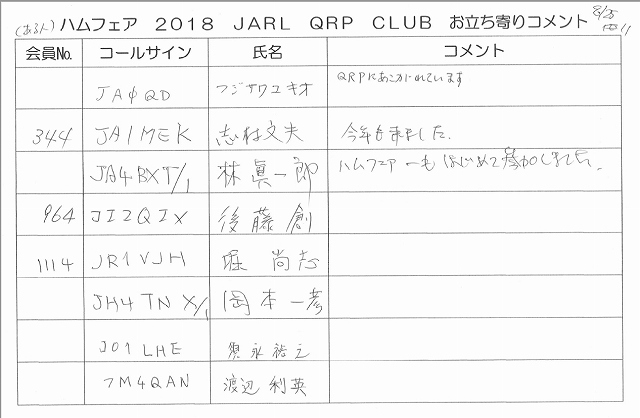 (ある人) ハムフェア 2018 JARL QRP CLUB お立ち寄りコメント 8/25
会員No. コールサイン 氏名 コメント
JAφQD フジサワユキオ QRPにあこがれています
344 JA1MEK 志村文夫 今年も来ました.
JA4BXT/1 林 眞一郎 ハムフェアーもはじめて参加しました.
964 JI2QIX 後藤 創
1114 JR1VJH 堀 尚志
JH4TNX/1 岡本一彦
JO1LHE 須永裕之
7M4QAN 渡辺利英